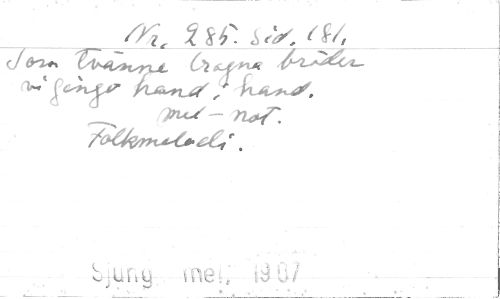 Nr. 285. Sid. 181.
Som tvänne trogna bröder
vi gingo hand i hand.
med - not.
Folkmelodi.
Sjung mej, 1907